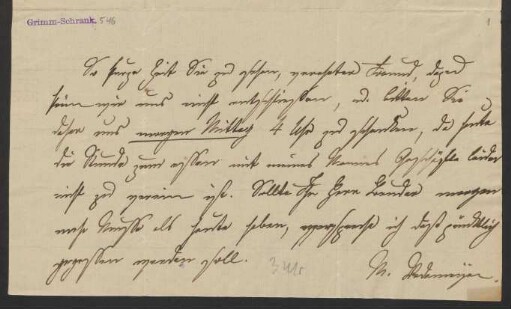 Grimm-Schrank. 546
1
So kurze Zeit Sie zu sehen, verehrter Freund, dazu
können wir uns nicht entschließen, u. bitten Sie
daher uns morgen Mittag 4 Uhr zu schenken, da heute
die Stunde zum essen mit meines Mannes Geschäfte leider
nicht zu verein ist. Sollte Ihr Herr Bruder morgen
mehr Musse als heute haben, verspreche ich daß pünktlich
gegessen werden soll.
M.